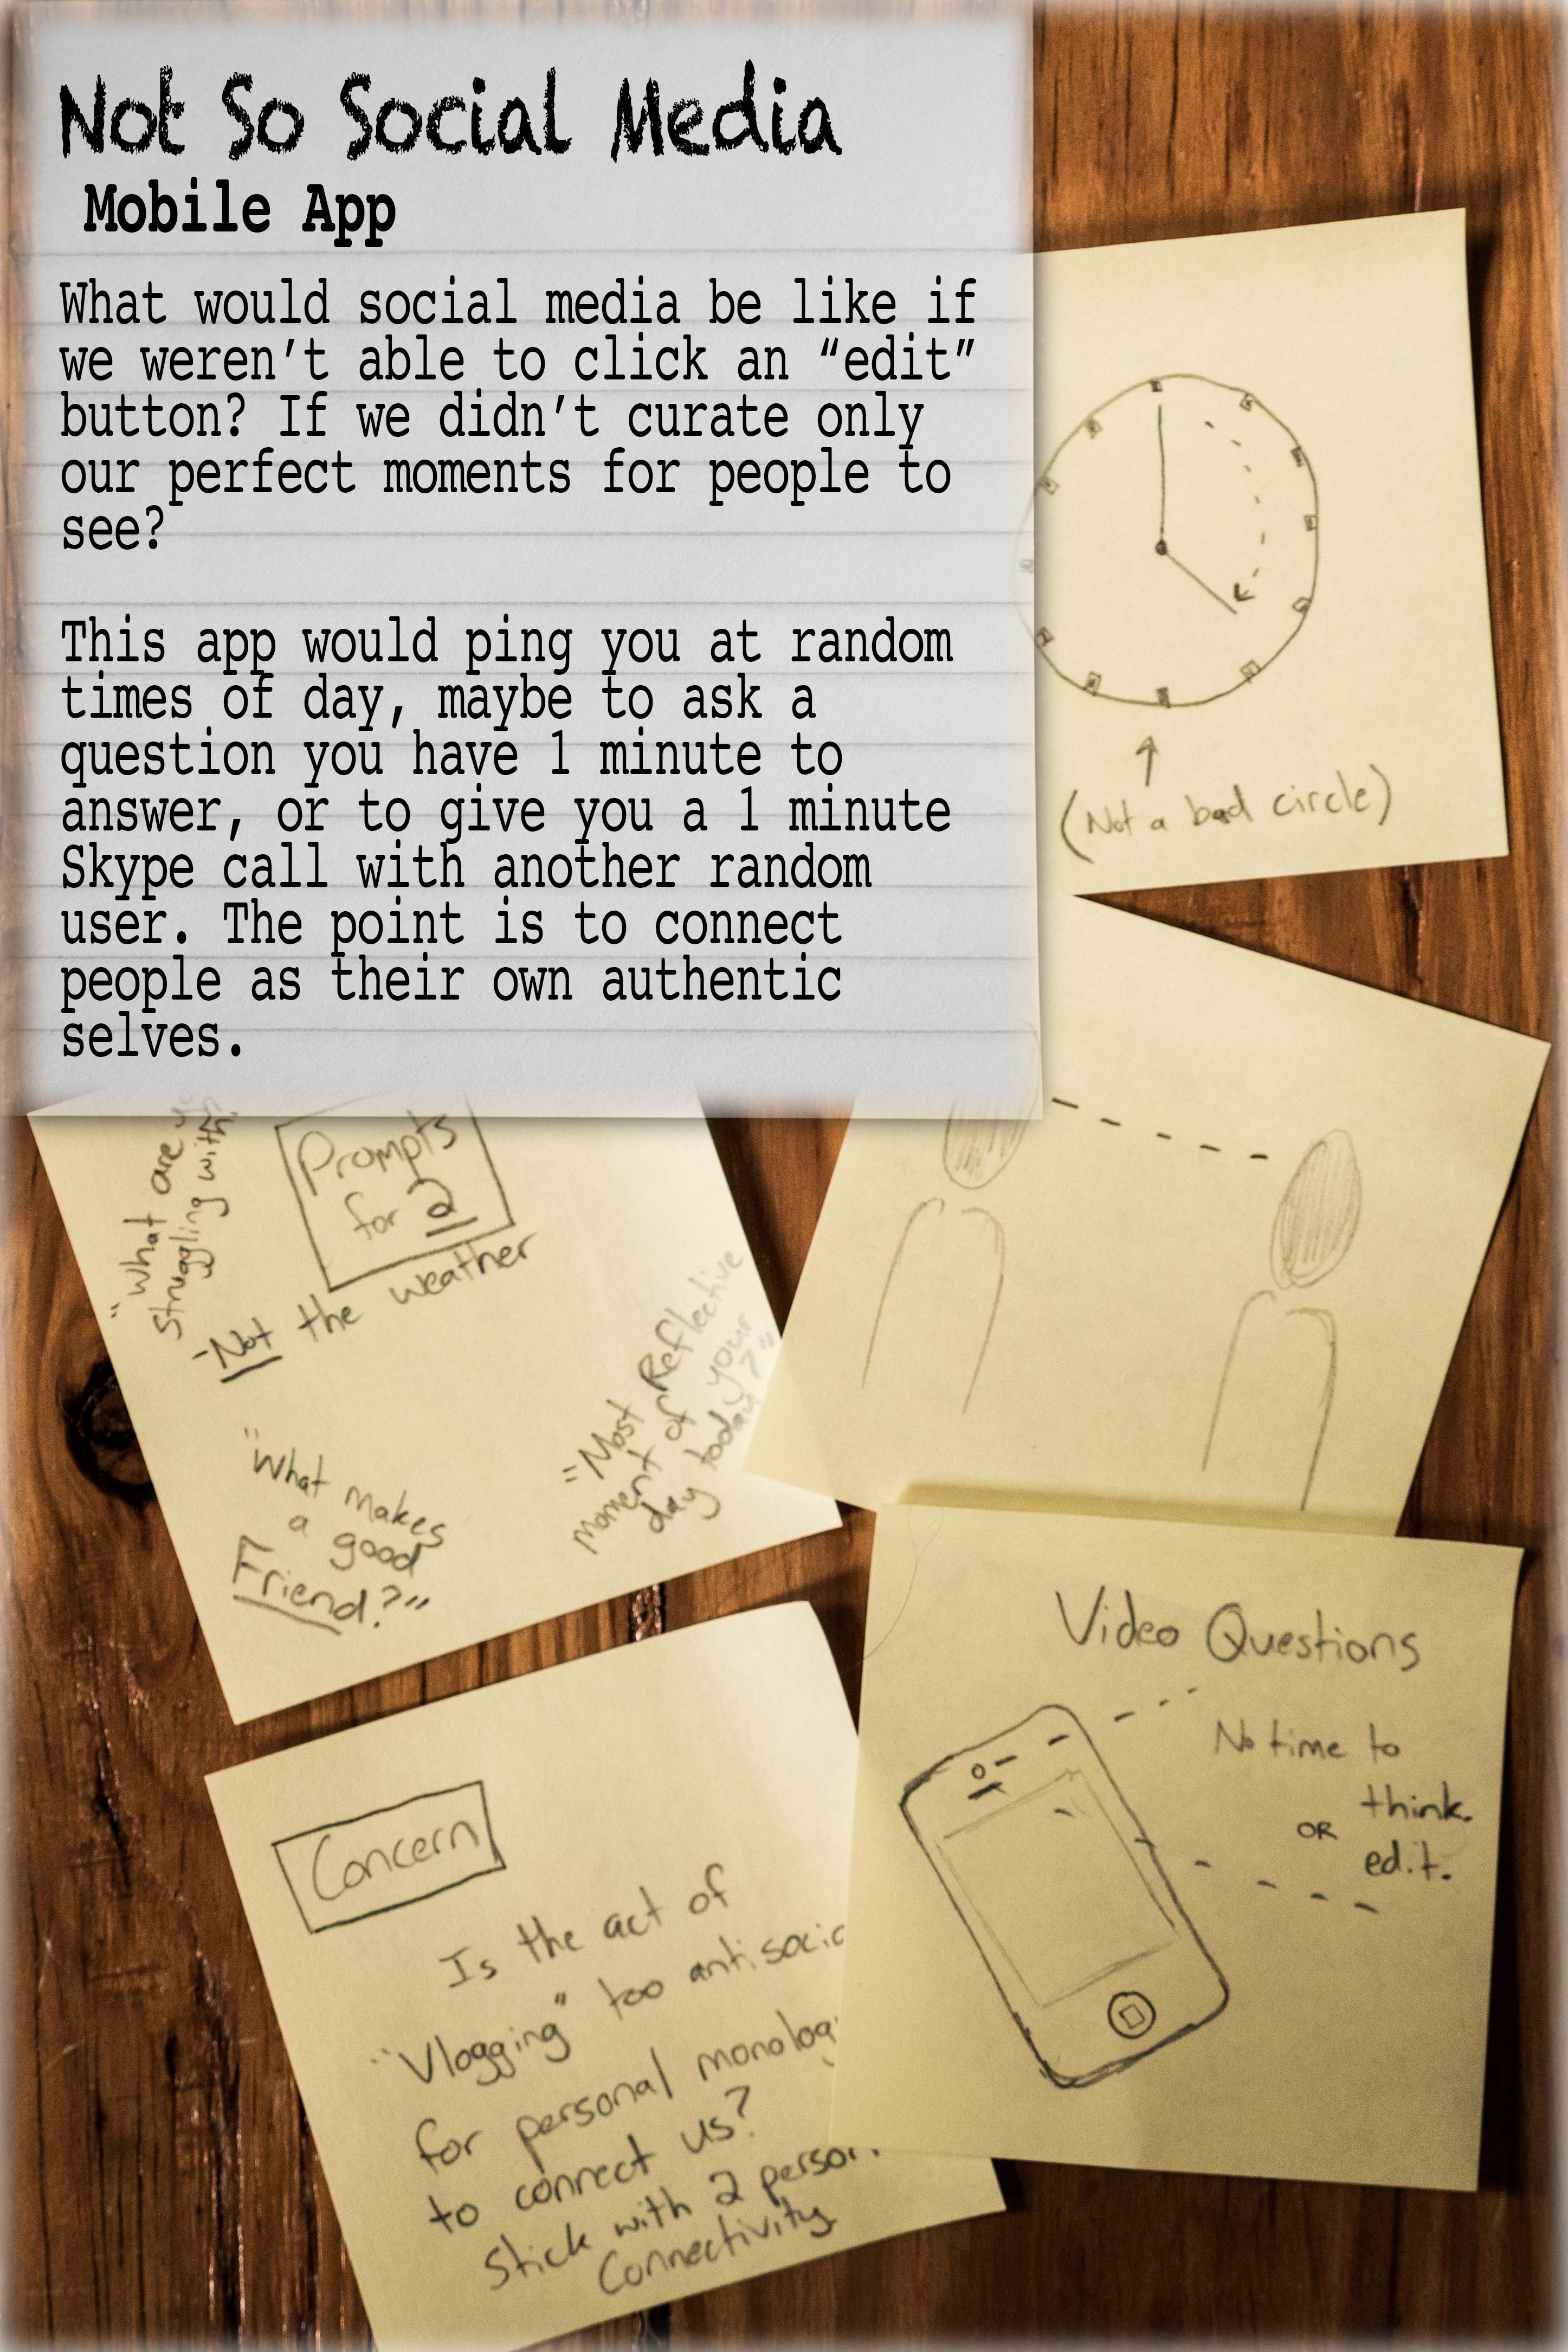 Not So Social Media
Mobile App
What would social media be like if
we weren't able to click an “edit”
button? If we didn't curate only
our perfect moments for people to
see?
This app would ping you at random
times of day, maybe to ask a
question you have 1 minute to
answer, or to give you a 1 minute
Skype call with another random
user. The point is to connect
people as their own authentic
selves.
(Not a bad circle)
"What are
struggling with
Prompts
for 2
-Not the weather
"What makes
a good
Friend?"
"Most Reflective
moment of your
day today?"
Video Questions
No time to
think.
OR
edit.
Concern
Is the act of
"Vlogging" too
for personal
to connect us?
Stick with 2
Connectivity